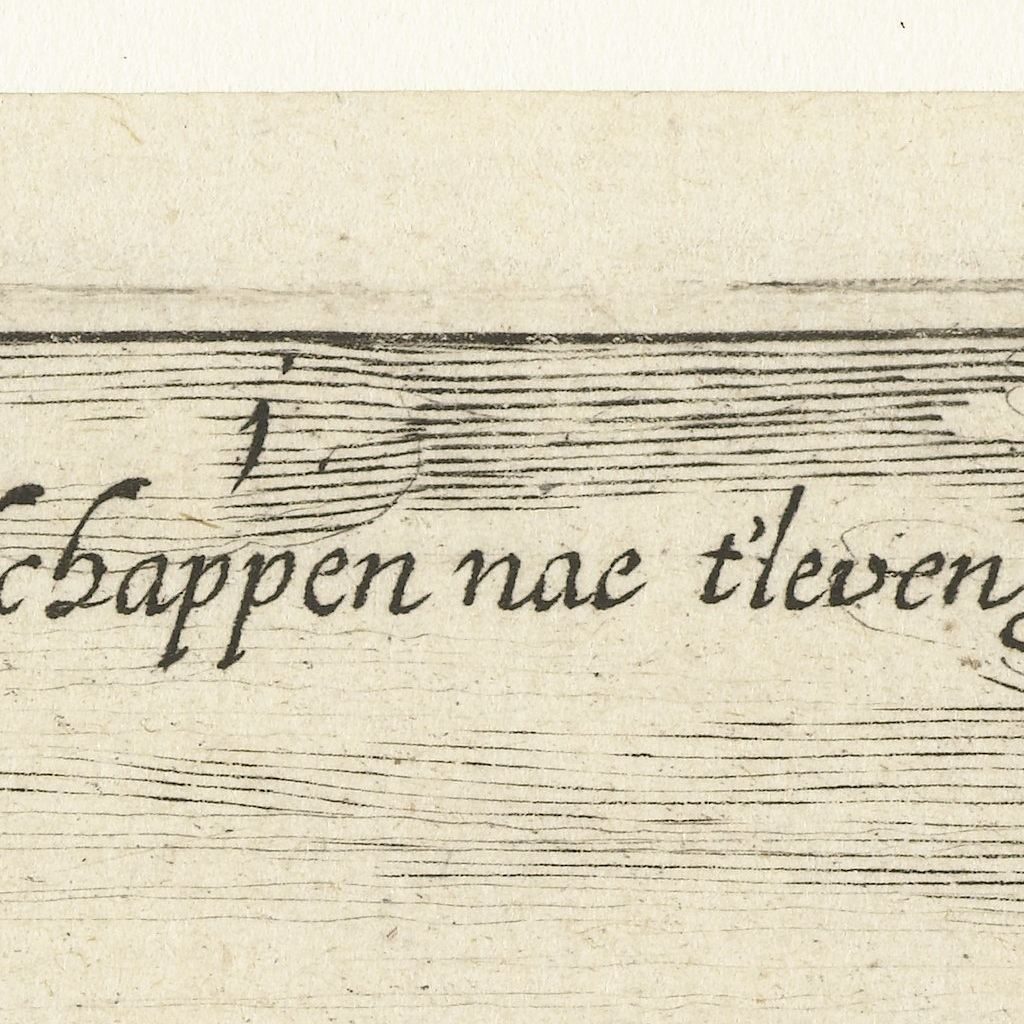 schappen nae t'leven